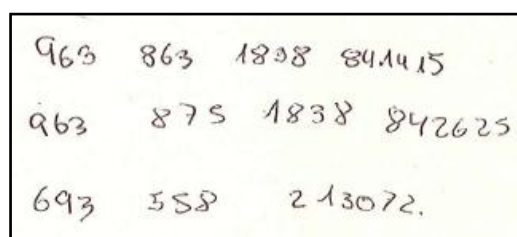 963 863 1838 841415
963 875 1838 842625
693 558 213072.